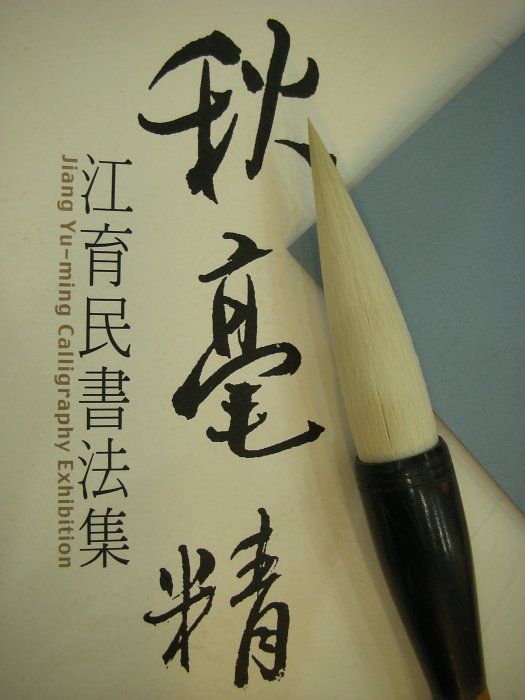 秋毫精
江育民書法集
Jiang Yu-ming Calligraphy Exhibition